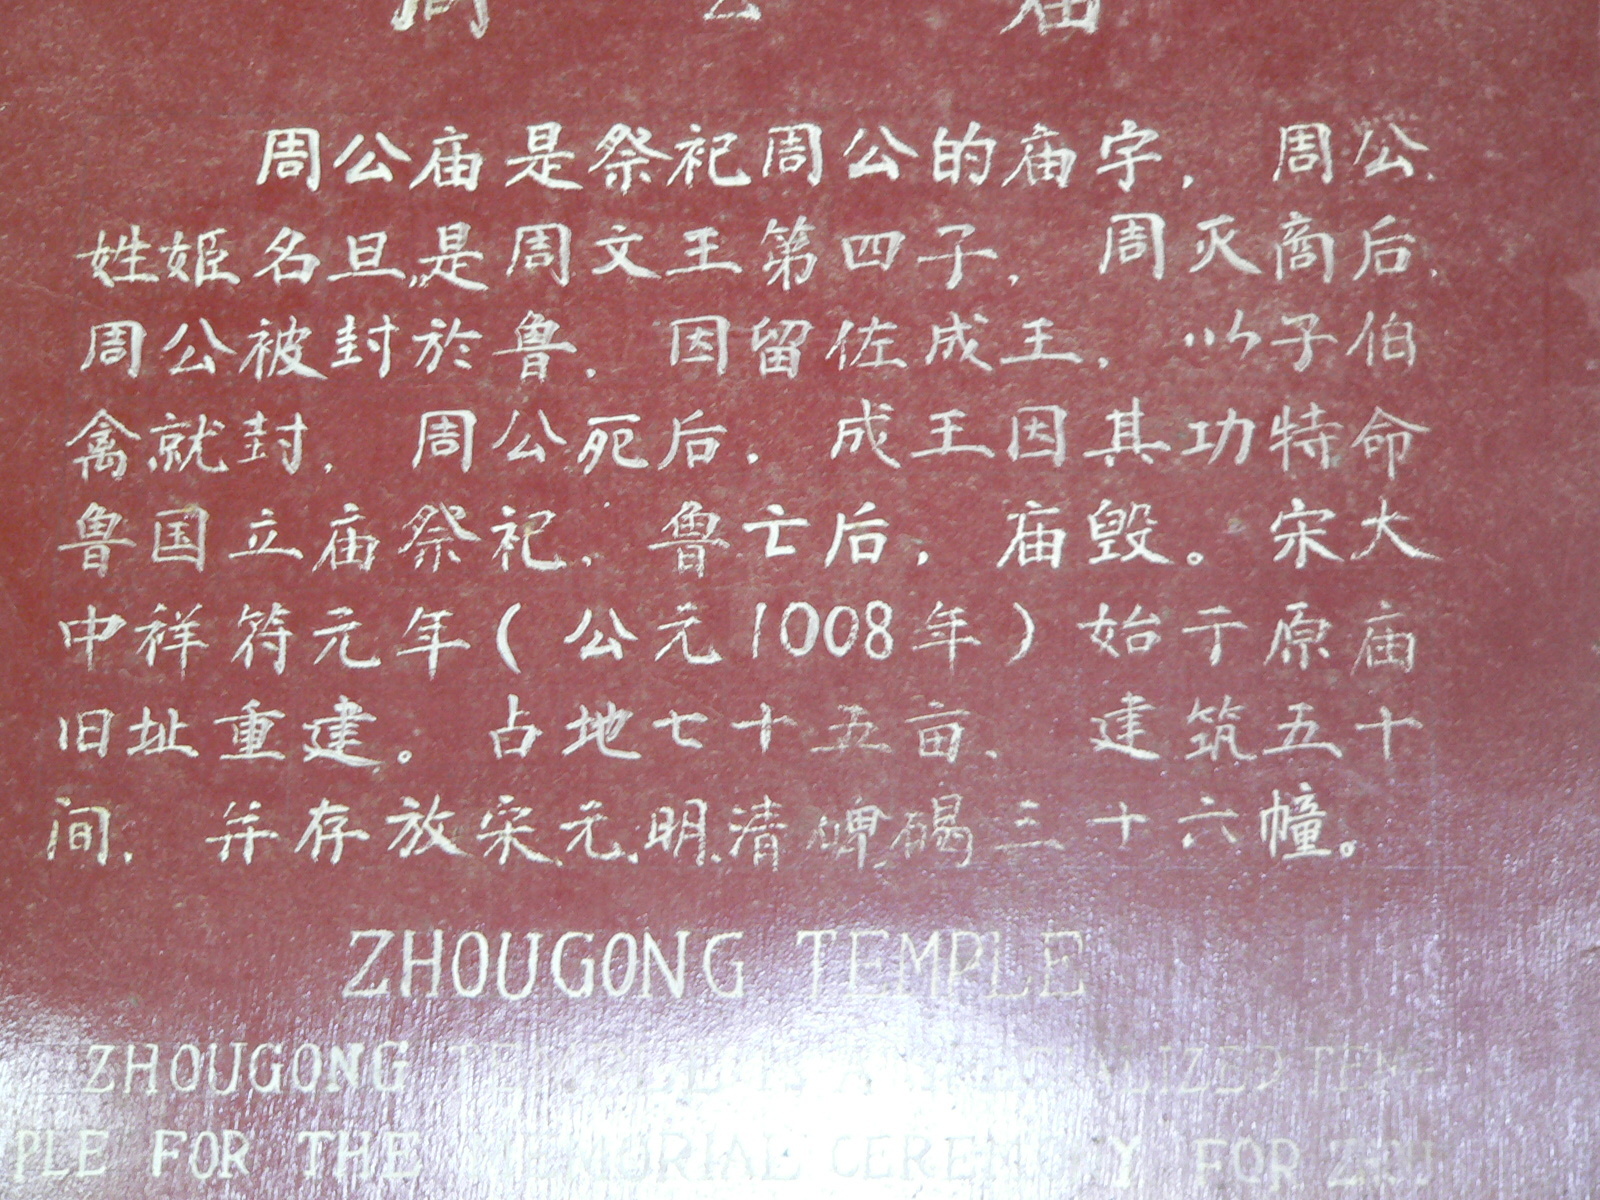 周公庙
周公庙是祭祀周公的庙宇，周公，
姓姬名旦，是周文王第四子，周灭商后，
周公被封於鲁，因留佐成王，以子伯
禽就封，周公死后，成王因其功特命
鲁国立庙祭祀，鲁亡后，庙毁。宋大
中祥符元年(公元1008年)始于原庙
旧址重建。占地七十五亩，建筑五十
间，并存放宋、元、明、清碑碣三十六幢。
ZHOUGONG TEMPLE
ZHOUGONG TEMPLE IS A SPECIALIZED TEM-
PLE FOR THE MEMORIAL CEREMONY FOR ZHOU